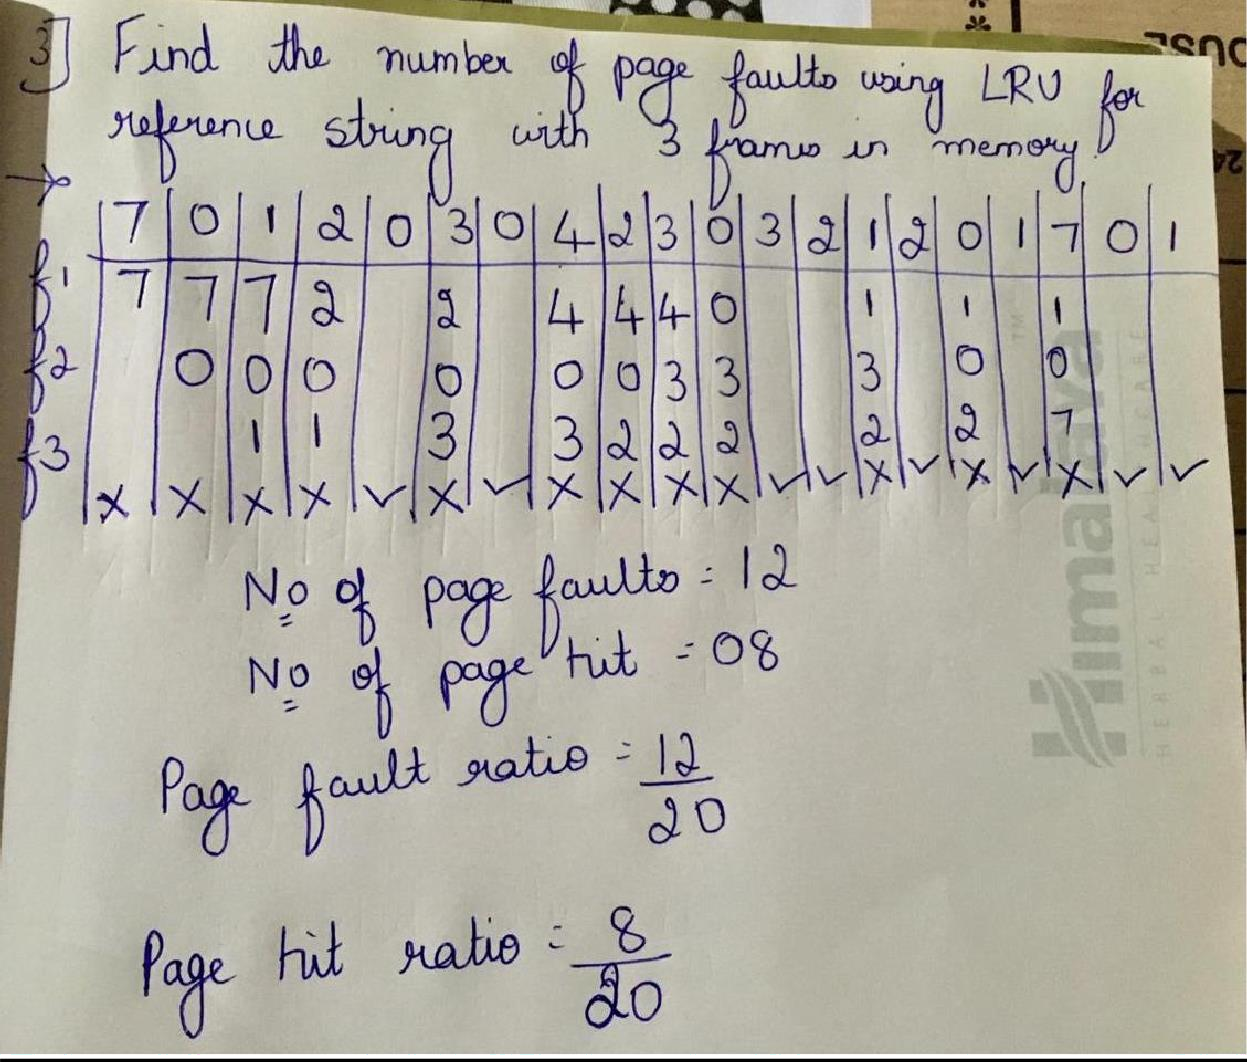 3] Find the number of page faults using LRU for
reference string with 3 frames in memory.
→
7 0 1 2 0 3 0 4 2 3 0 3 2 1 2 0 1 7 0 1
f1 7 7 7 2 2 4 4 4 0 1 1 1
f2 0 0 0 0 0 0 3 3 3 0 0
f3 1 1 3 3 2 2 2 2 2 7
x x x x ✓ x ✓ x x x x ✓ ✓ x ✓ x ✓ x ✓ ✓
No of page faults = 12
No of page hit = 08
Page fault ratio = 12
20
Page hit ratio = 8
20
Himalaya
TM
HERBAL HEALTHCARE